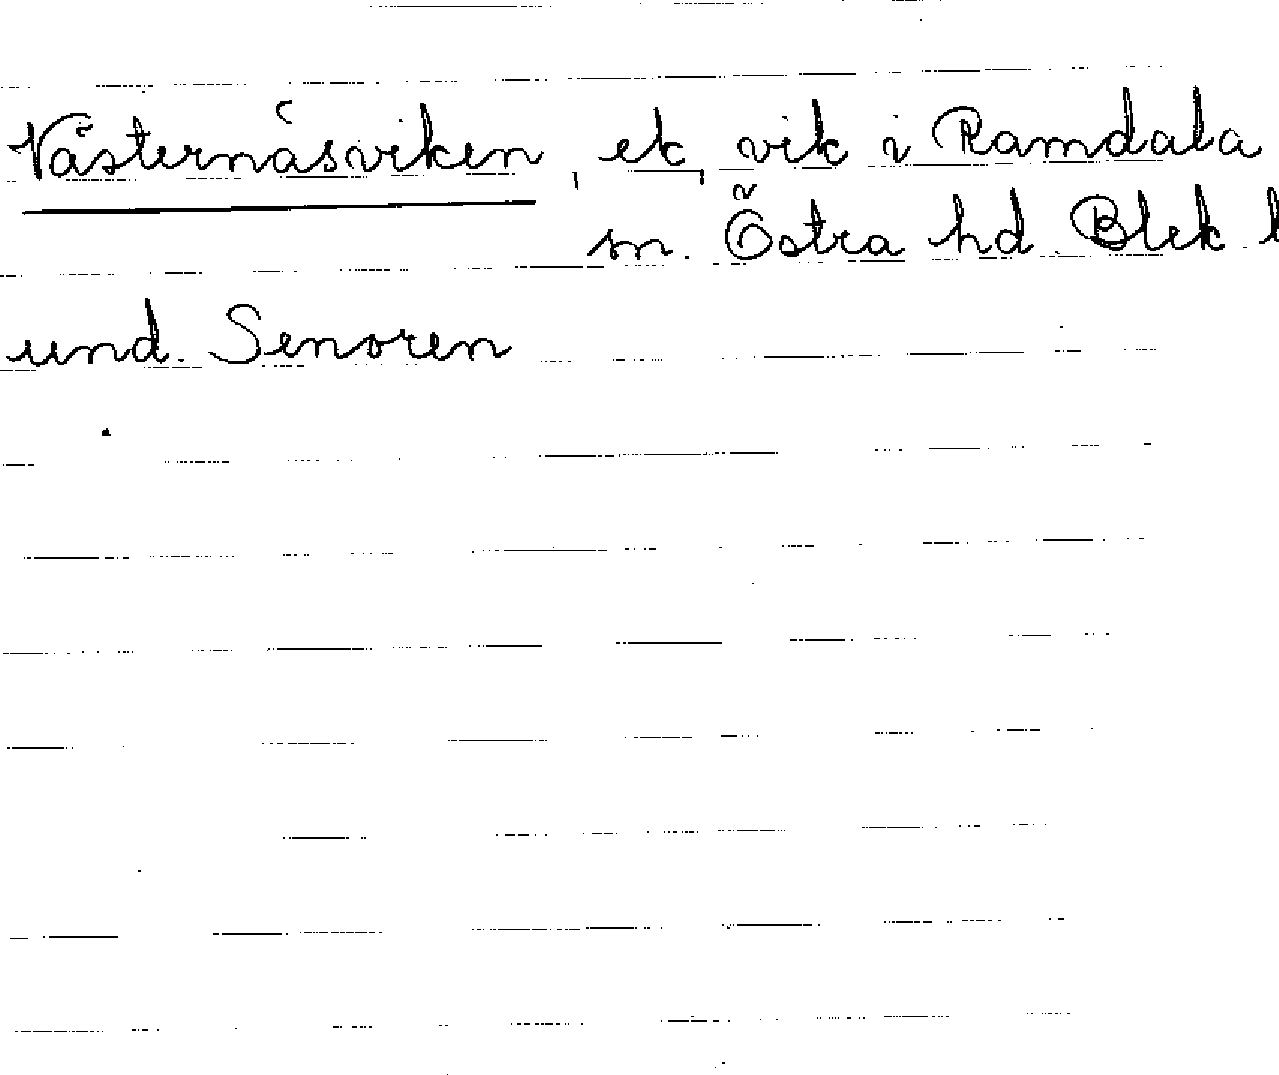 Västernäsviken, ek, vik i Ramdala
sn. Östra hd. Blek l
und. Senoren